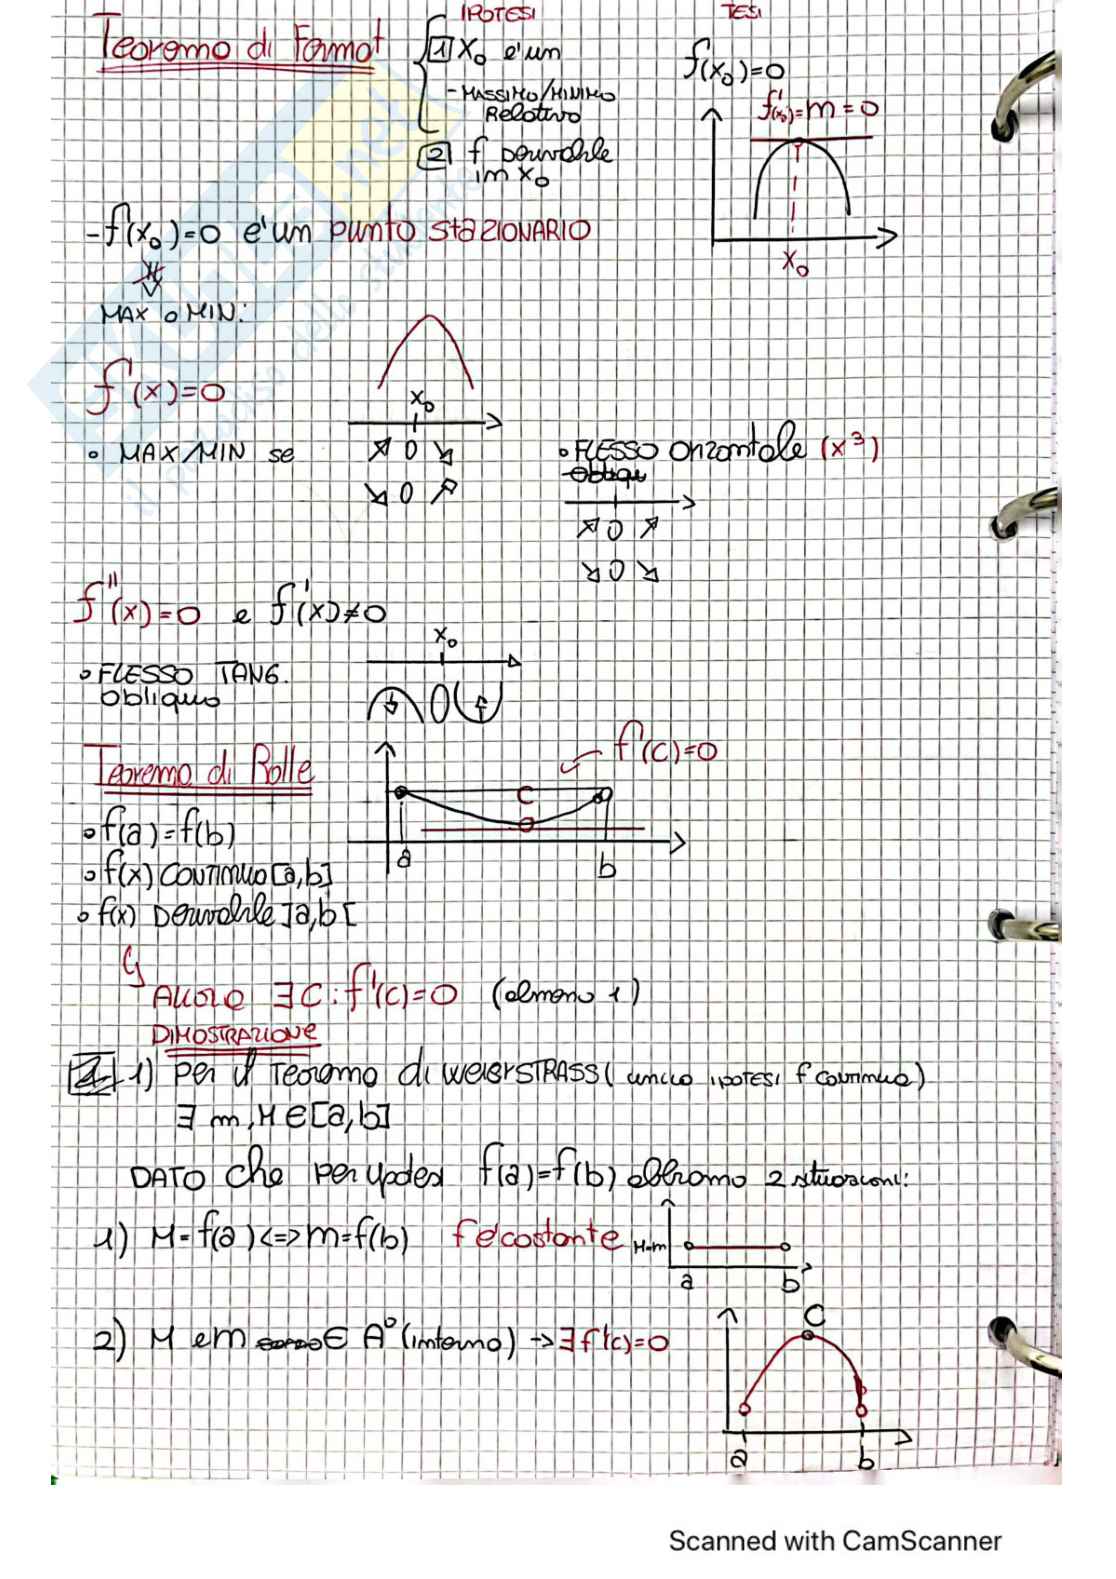 IPOTESI
TESI
Teorema di Fermat
1 x₀ e' un
- MASSIMO/MINIMO
Relativo
2 f Derivabile
in x₀
f'(x₀)=0
f'(x₀)=m=0
x₀
-f'(x₀)=0 e' un punto stazionario
MAX o MIN:
f'(x)=0
x₀
• MAX/MIN se
0
0
• FLESSO orizzontale (x³)
0
0
f''(x)=0 e f'(x)≠0
x₀
• FLESSO TANG.
obliquo
0
Teorema di Rolle
f'(c)=0
C
a
b
• f(a)=f(b)
• f(x) CONTINUA [a,b]
• f(x) Derivabile ]a,b[
Allora ∃C:f'(c)=0 (almeno 1)
DIMOSTRAZIONE
1) Per il Teorema di WEIERSTRASS (unica ipotesi f continua)
∃ m,M∈[a,b]
DATO che per ipotesi f(a)=f(b) abbiamo 2 situazioni:
1) M=f(a)<=>m=f(b) f e' costante
M=m
a
b
2) M e m ∈ A° (interno) → ∃f'(c)=0
C
a
b
Scanned with CamScanner